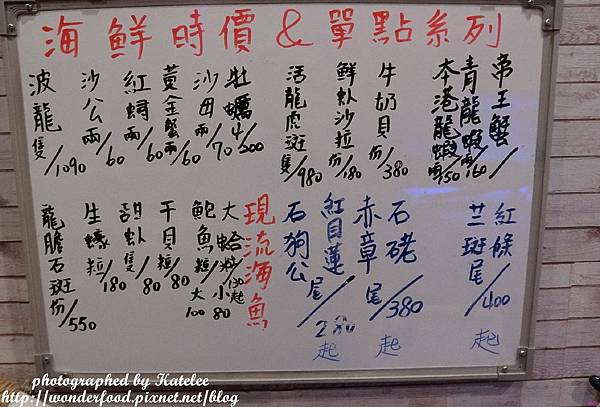 海鮮時價&單點系列
帝王蟹/
青龍蝦兩/160
本港龍蝦兩/150
牛奶貝份/380
鮮魞沙拉份/180
活龍虎斑隻/980
牡蠣4/300
沙母兩/70
黃金蟹兩/60
紅蟳兩/60
沙公兩/60
波龍隻/1090
紅條
芒斑尾/400起
石硓
赤章尾/380起
紅目蓮
石狗公尾/280起
現流海魚
大蛤粒/130起
鮑魚粒/大100小80
干貝粒/80
甜魞隻/80
生蠔粒/180
龍膽石斑份/550
photographed by Katelee
http://wonderfood.pixnet.net/blog